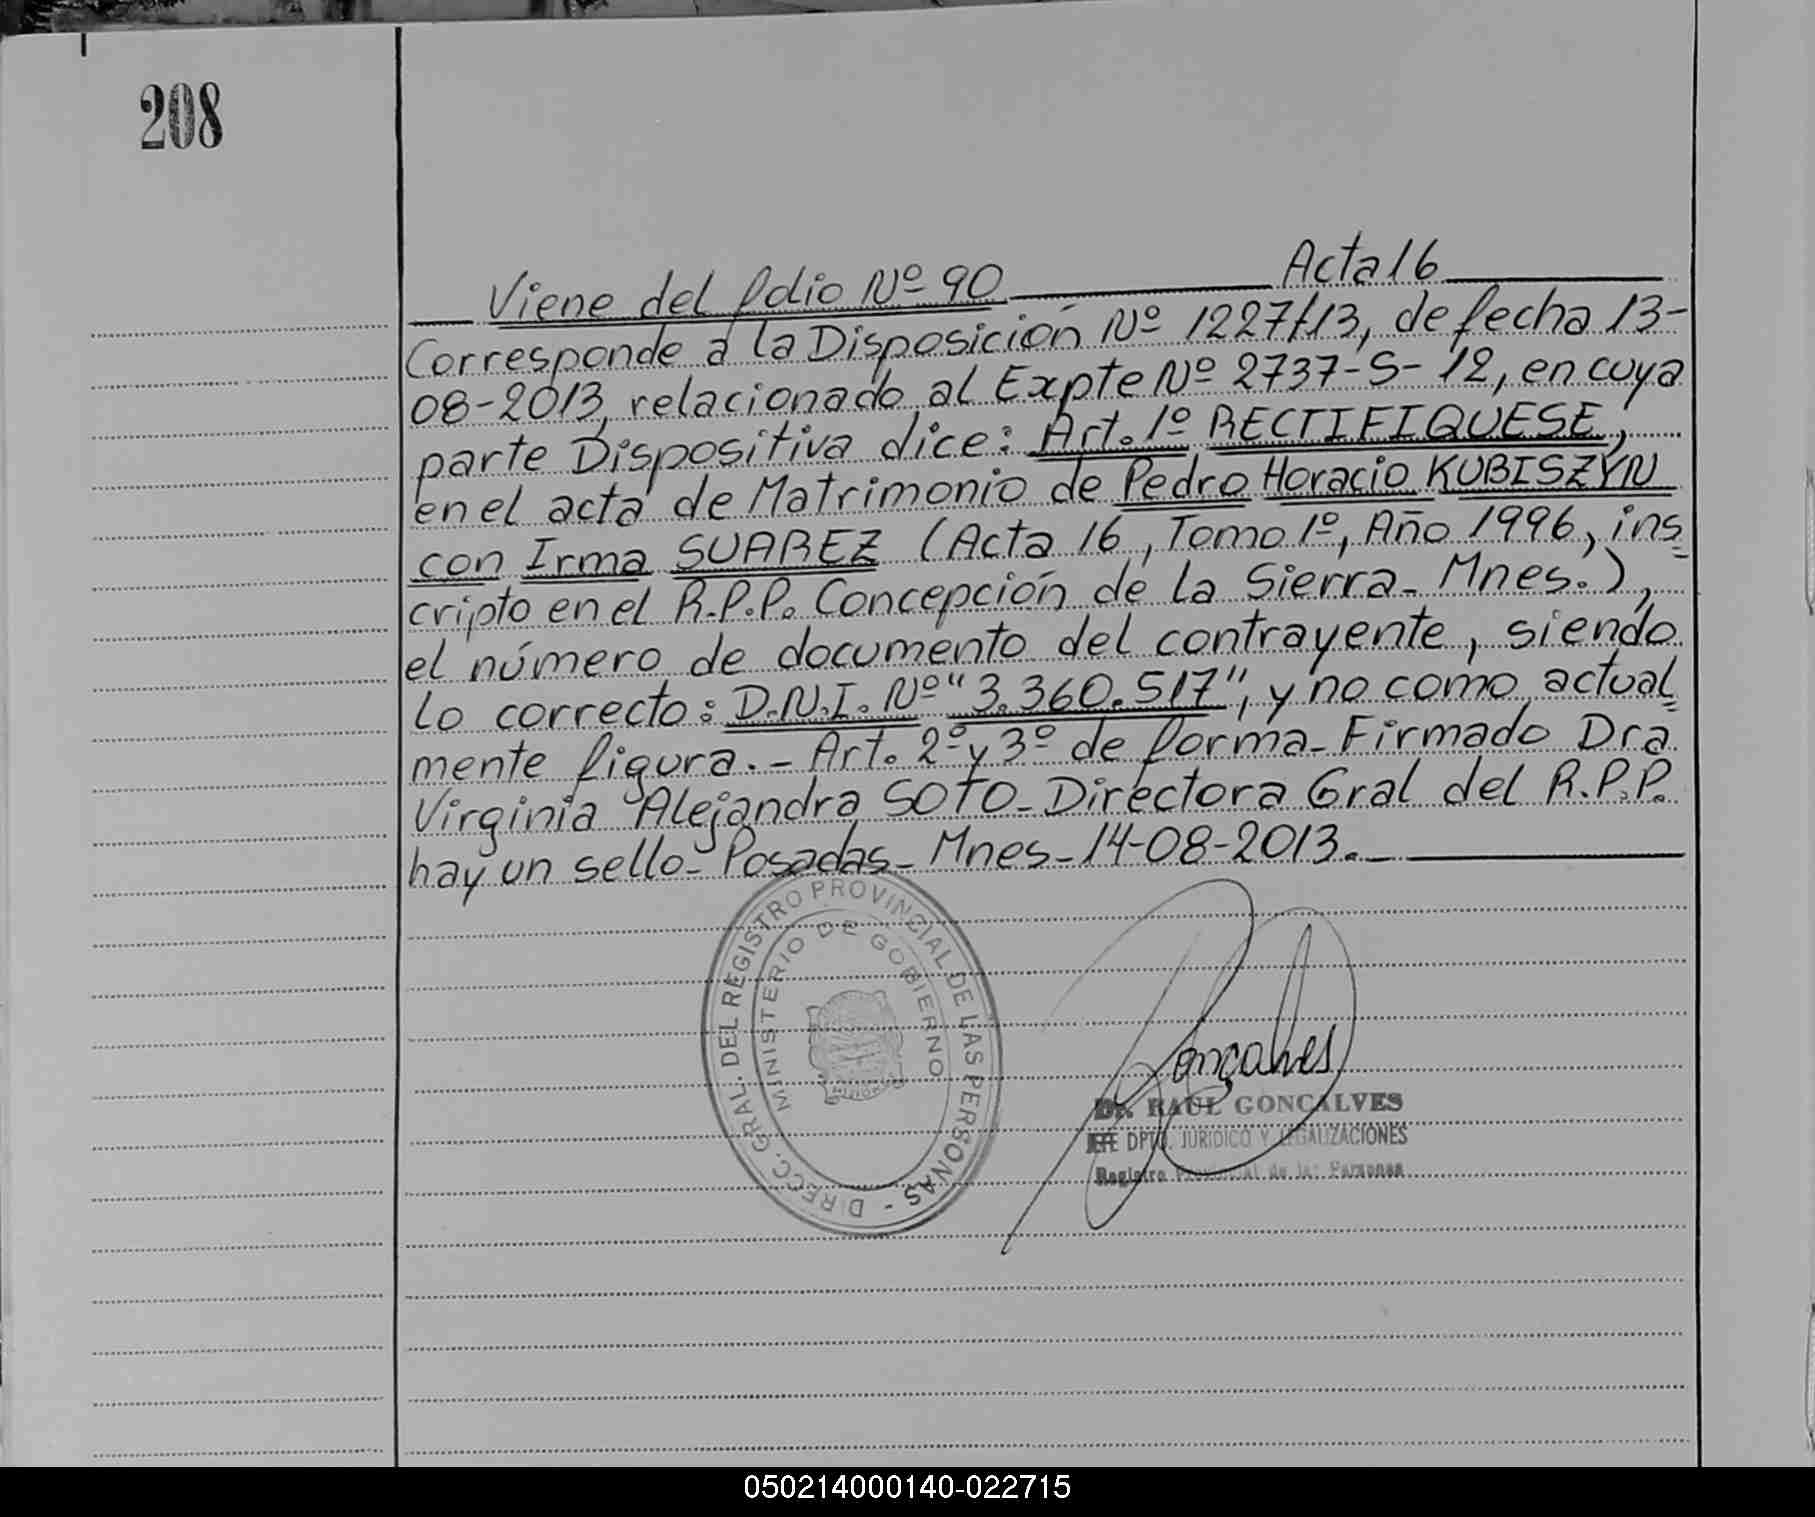 208
Viene del folio Nº 90 Acta 16
Corresponde a la Disposición Nº 1227/13, de fecha 13-
08-2013, relacionado al Expte Nº 2737-S-12, en cuya
parte Dispositiva dice: Art. 1º RECTIFIQUESE,
en el acta de Matrimonio de Pedro Horacio KUBISZYN
con Irma SUAREZ (Acta 16, Tomo 1º, Año 1996, ins
cripto en el R.P.P. Concepción de la Sierra - Mnes.),
el número de documento del contrayente, siendo
lo correcto: D.N.I. Nº "3.360.517", y no como actual
mente figura. - Art. 2º y 3º de forma - Firmado Dra
Virginia Alejandra SOTO - Directora Gral del R.P.P.
hay un sello - Posadas - Mnes - 14-08-2013. -
DIRECC. GRAL. DEL REGISTRO PROVINCIAL DE LAS PERSONAS -
MINISTERIO DE GOBIERNO
MISIONES
Gonçalves
Dr. RAUL GONÇALVES
JEFE DPTO. JURIDICO Y LEGALIZACIONES
Registro Provincial de las Personas
050214000140-022715